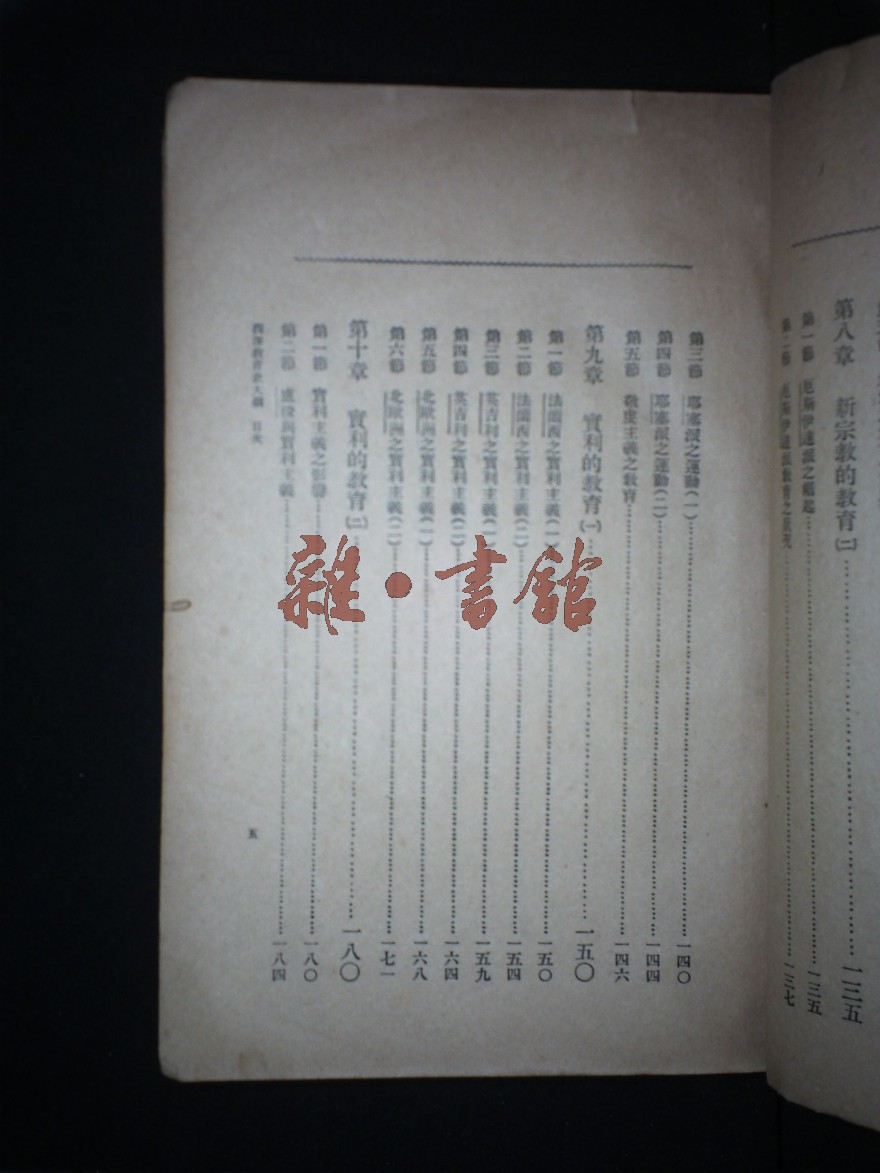 第八章 新宗教的教育(二)……一三五
第一節 厄斯伊達派之崛起……一三五
第二節 厄斯伊達派教育之……一三七
第三節 耶塞派之運動(一)……一四〇
第四節 耶塞派之運動(二)……一四四
第五節 敬虔主義之教育……一四六
第九章 實利的教育(一)……一五〇
第一節 法蘭西之實利主義(一)……一五〇
第二節 法蘭西之實利主義(二)……一五四
第三節 英吉利之實利主義(一)……一五九
第四節 英吉利之實利主義(二)……一六四
第五節 北歐洲之實利主義(一)……一六八
第六節 北歐洲之實利主義(二)……一七一
第十章 實利的教育(二)……一八〇
第一節 實利主義之影響……一八〇
第二節 盧梭與實利主義……一八四
西洋教育史大綱 目次
五
雜·書館